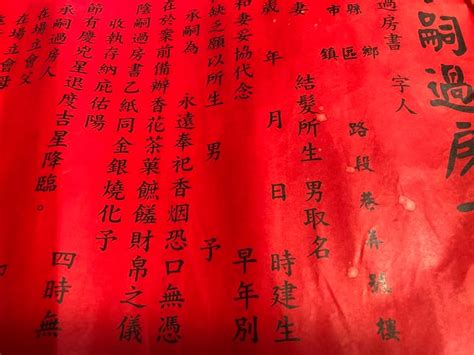 嗣過房
過房書 字人
縣市 鄉鎮區 路段巷弄號樓
妻 結髮所生男取名
歲 年 月 日 時建生
和妻妥協代念 早年別
缺之願以所生 男 予
承嗣為 永遠奉祀香烟恐口無憑
在於案前備辦香花茶菓饈財帛之儀
陰嗣過房書乙紙同金銀燒化予
收執存納庇佑陽 四時無
節有慶兇星退度吉星降臨。
承嗣過房書人
在場立會父
在場立會母